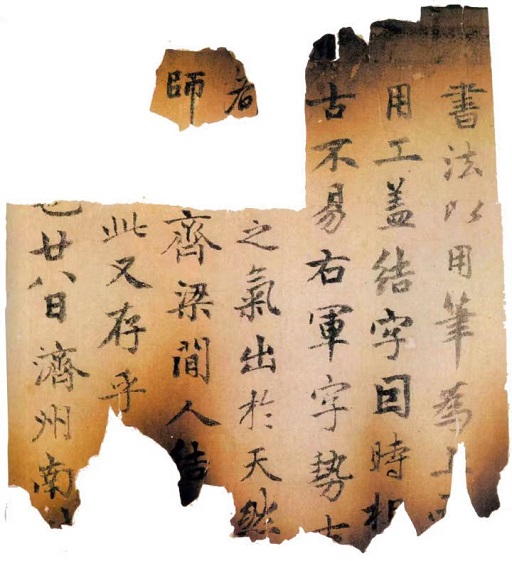 書法以用筆為上
用工盖結字因時相
古不易右軍字勢古
之氣出於天然
師
齊梁間人結
此又存乎
也廿八日濟州南